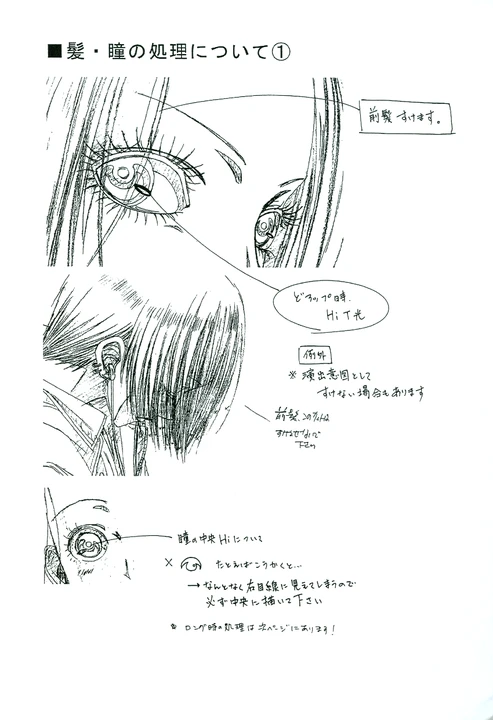 ■髪・瞳の処理について①
前髪 すけます。
どアップ時、
Hi T光
例外
※ 演出意図として
すけない場合もあります
前髪、
下さい
瞳の中央Hiについて
× たとえばこうかくと…
→なんとなく右目線に見えてしまうので
必ず中央に描いて下さい
※ ロング時の処理は次ページにあります!